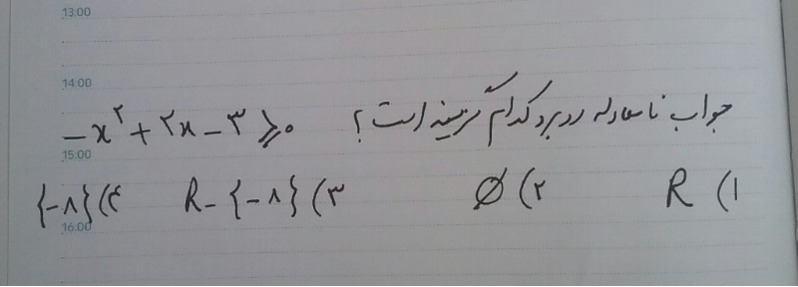 13:00
14:00
جواب نامعادله روبرو کدام گزینه است؟ -x² + 2x - 3 ≥ 0
15:00
۱) R ۲) Ø ۳) R-{-۸} ۴) {-۸}
16:00